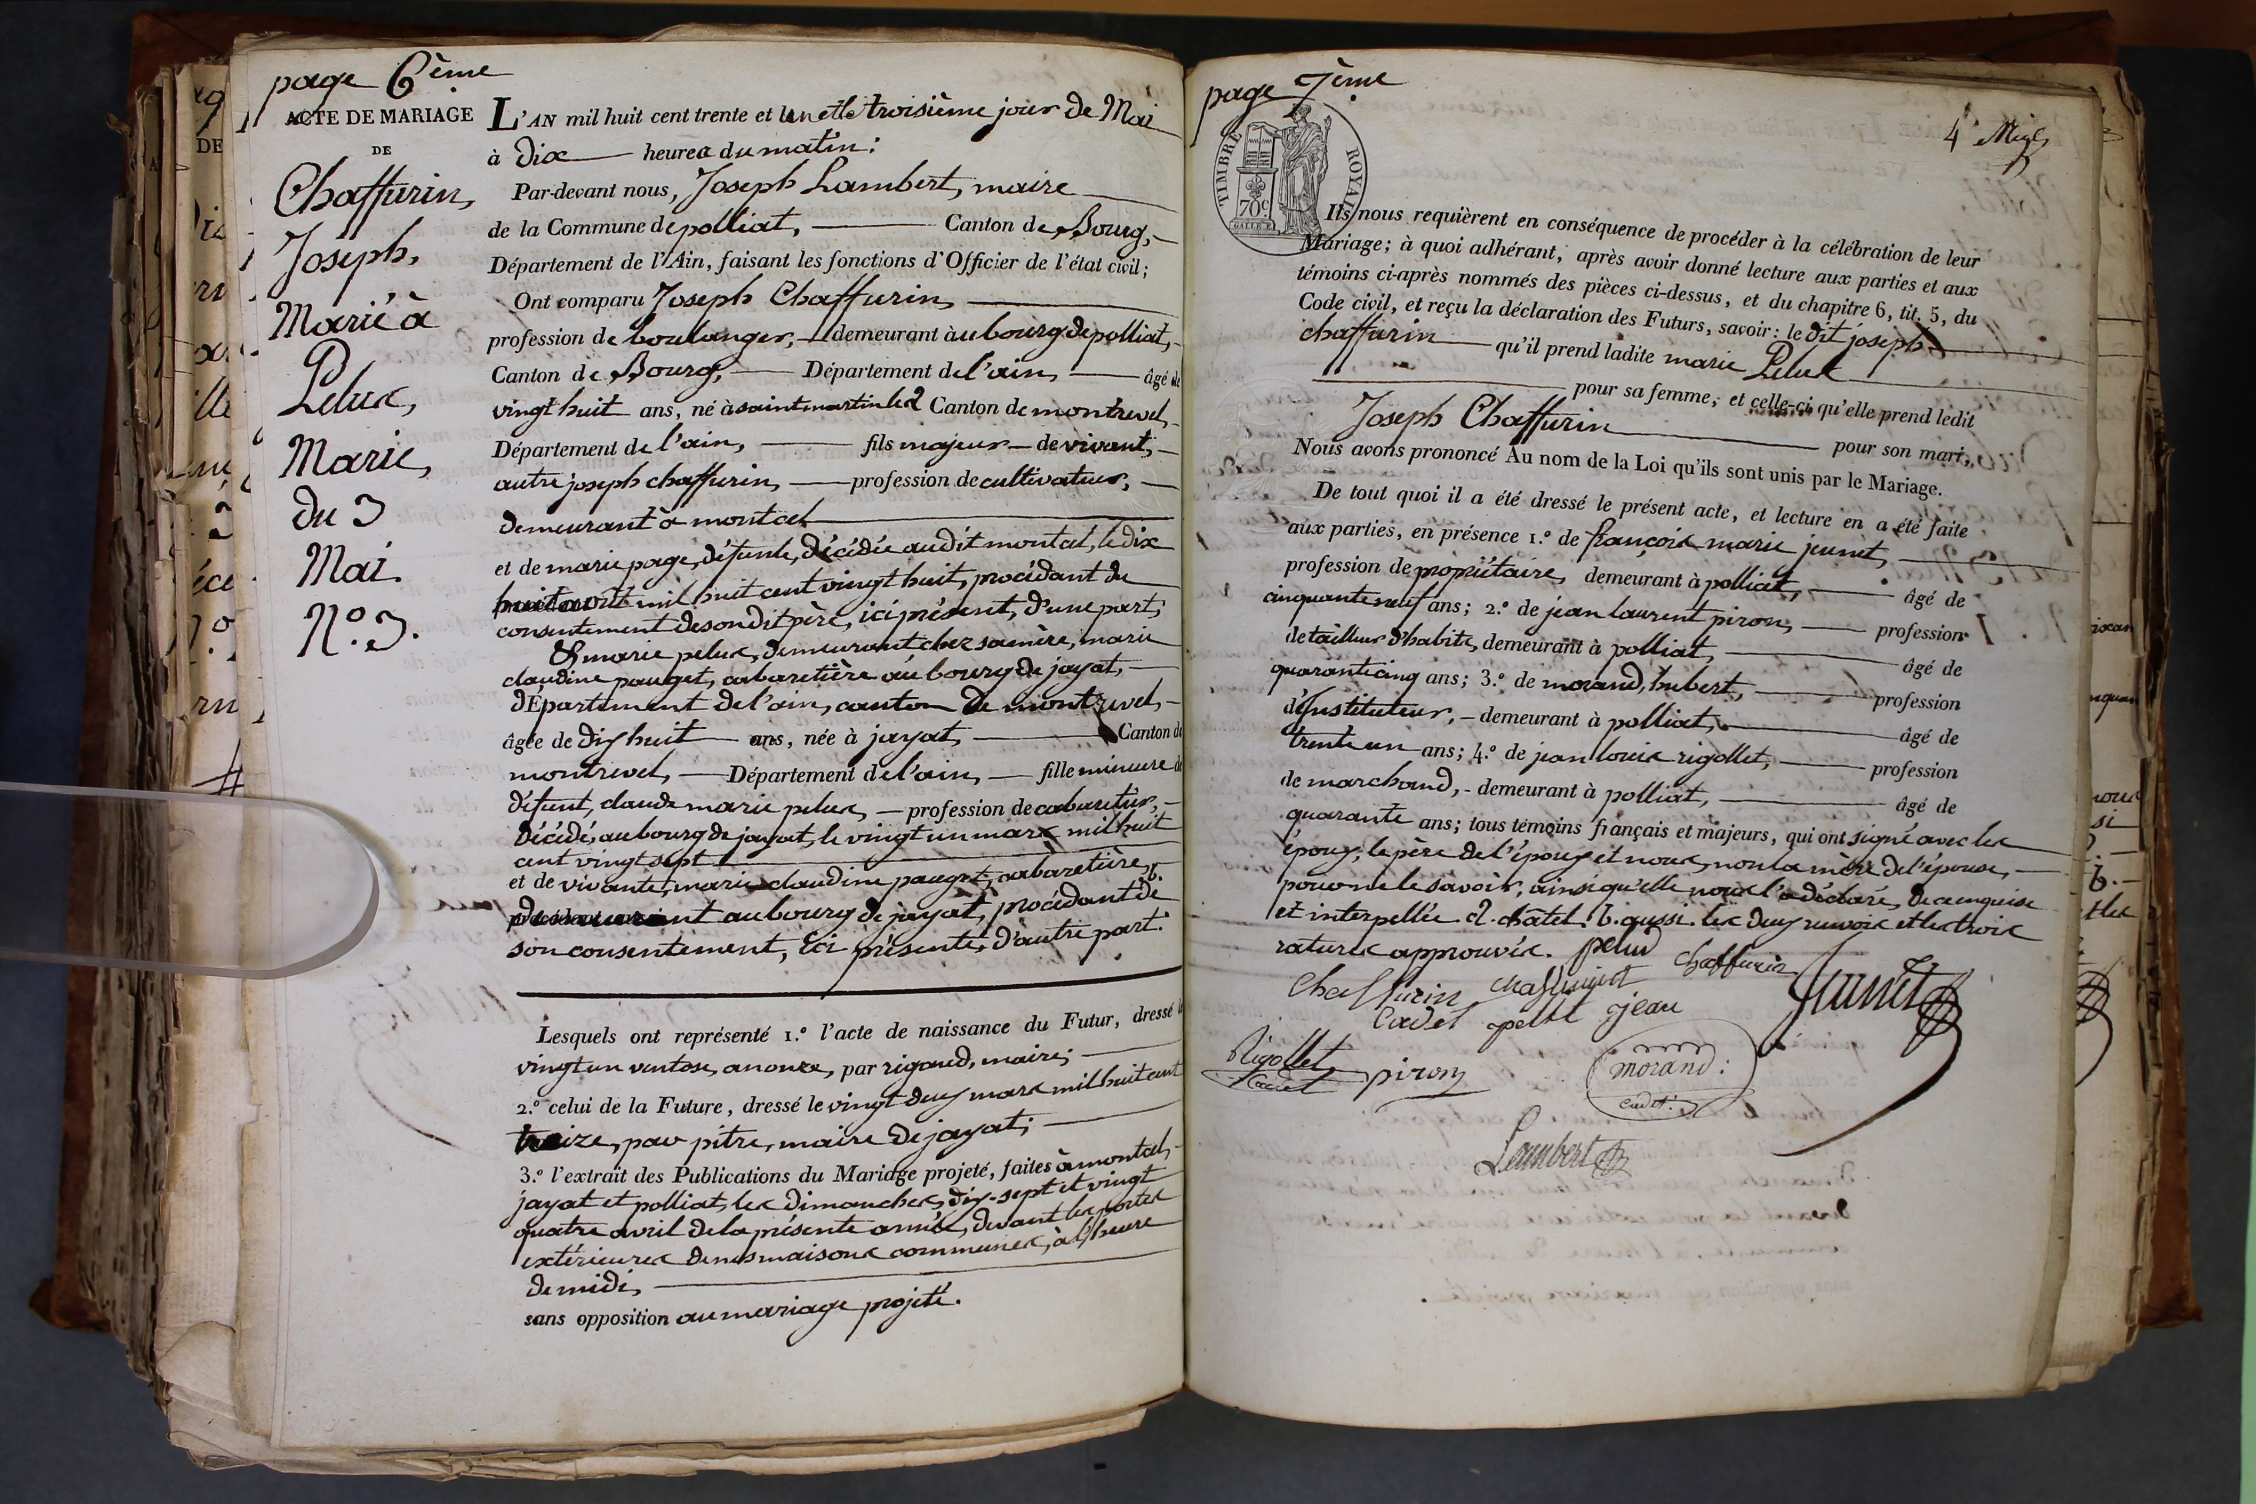 page 6ème
ACTE DE MARIAGE
DE
Chaffurin,
Joseph,
Marié à
Pelux,
Marie,
du 3
Mai.
N.o 3.
L'AN mil huit cent trente et un et le troisième jour de Mai
à Dix heures du matin;
Par-devant nous, Joseph Lambert, maire
de la Commune de polliat, Canton de Bourg,
Département de l'Ain, faisant les fonctions d'Officier de l'état civil;
Ont comparu Joseph Chaffurin,
profession de boulanger, demeurant au bourg de polliat,
Canton de Bourg, Département de l'ain, âgé de
vingt huit ans, né à saint martin le Canton de montrevel,
Département de l'ain, fils majeur de vivant,
autre joseph chaffurin, profession de cultivateur,
demeurant à montcel
et de marie page, défunte, décédée audit montcel, le dix
huit avril mil huit cent vingt huit, procédant du
consentement de son dit père, ici présent, d'une part;
Et marie pelux, demeurant chez sa mère, marie
claudine pauget, cabaretière au bourg de jayat,
département de l'ain, canton de montrevel,
âgée de dix huit ans, née à jayat, Canton de
montrevel, Département de l'ain, fille mineure de
défunt, claude marie pelux, profession de cabaretier,
décédé, au bourg de jayat, le vingt un mars mil huit
cent vingt sept
et de vivante, marie claudine pauget, cabaretière, b.
demeurant au bourg de jayat, procédant de
son consentement, ici présente, d'autre part.
Lesquels ont représenté 1.o l'acte de naissance du Futur, dressé le
vingt un ventose, an onze, par rigaud, maire;
2.o celui de la Future, dressé le vingt deux mars mil huit cent
treize, par pitre, maire de jayat;
3.o l'extrait des Publications du Mariage projeté, faites à montcel,
jayat et polliat, les dimanches, dix-sept et vingt
quatre avril de la présente année, devant les portes
extérieures de nos maisons communes, à l'heure
de midi,
sans opposition au mariage projeté.
page 7ème
TIMBRE ROYAL
70c
4
Ils nous requièrent en conséquence de procéder à la célébration de leur
Mariage; à quoi adhérant, après avoir donné lecture aux parties et aux
témoins ci-après nommés des pièces ci-dessus, et du chapitre 6, tit. 5, du
Code civil, et reçu la déclaration des Futurs, savoir: le dit joseph
chaffurin qu'il prend ladite marie Pelux
pour sa femme, et celle-ci qu'elle prend ledit
Joseph Chaffurin pour son mari,
Nous avons prononcé Au nom de la Loi qu'ils sont unis par le Mariage.
De tout quoi il a été dressé le présent acte, et lecture en a été faite
aux parties, en présence 1.o de françois marie jeunet,
profession de propriétaire, demeurant à polliat, âgé de
cinquante neuf ans; 2.o de jean laurent piron, profession
de tailleur d'habits, demeurant à polliat, âgé de
quarante cinq ans; 3.o de morand, hubert, profession
d'instituteur, demeurant à polliat, âgé de
trente un ans; 4.o de jean louis rigollet, profession
de marchand, demeurant à polliat, âgé de
quarante ans; tous témoins français et majeurs, qui ont signé avec les
époux, le père de l'époux et nous, non la mère de l'épouse,
pour ne le savoir, ainsi qu'elle nous l'a déclaré, de ce enquise
et interpellée. châtel. b. aussi. les deux renvois et les trois
ratures approuvés. pelux
Chaffurin Chaffurin
Cadet jean Junet
Rigollet piron morand:
Cadet cadet
Lambert